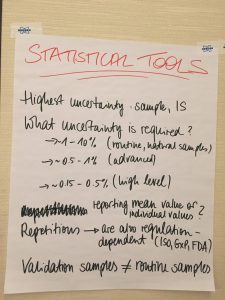 STATISTICAL TOOLS
Highest uncertainty · sample, IS
What uncertainty is required?
→ 1-10% (routine, natural samples)
→ ~0.5-1% (advanced)
→ ~0.15-0.5% (high level)
reporting mean value or
individual values?
Repetitions → are also regulation-
dependent (ISO, GxP, FDA)
Validation samples ≠ routine samples